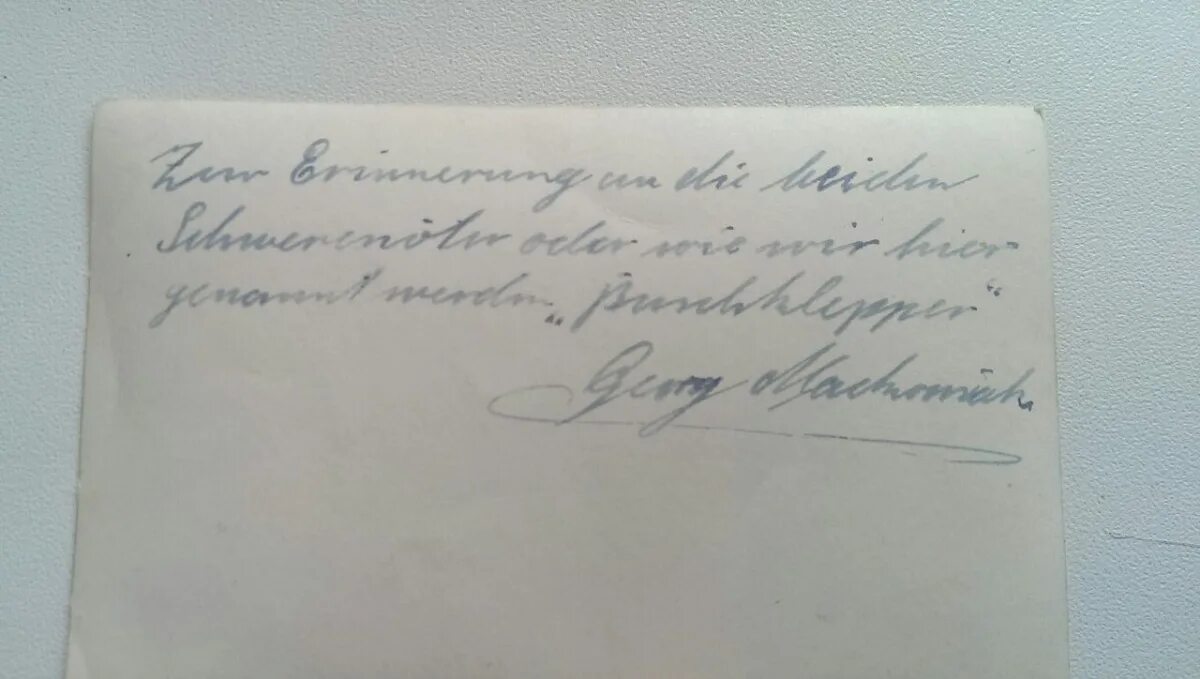 Zur Erinnerung an die beiden
Schwerenöter oder wie wir hier
genannt werden „Buschklepper“
Georg Mackowiak.